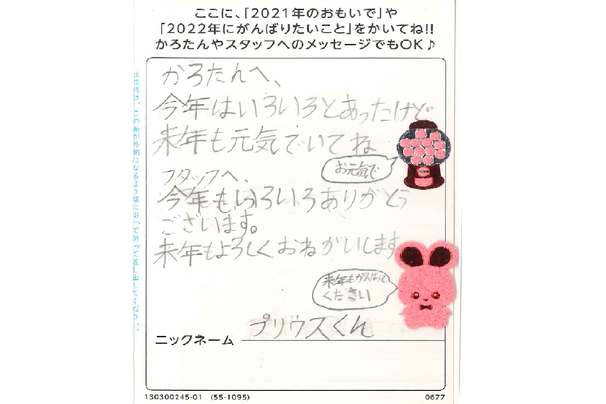 ここに、「2021年のおもいで」や
「2022年にがんばりたいこと」をかいてね!!
かろたんやスタッフへのメッセージでもOK♪
かろたんへ、
今年はいろいろとあったけど
来年も元気でいてね
お元気で
フタッフへ、
今年もいろいろありがとう
ございます。
来年もよろしくおねがいします
来年もがんばって
ください
ニックネーム プリウスくん
130300245-01 (55-1095) 0677